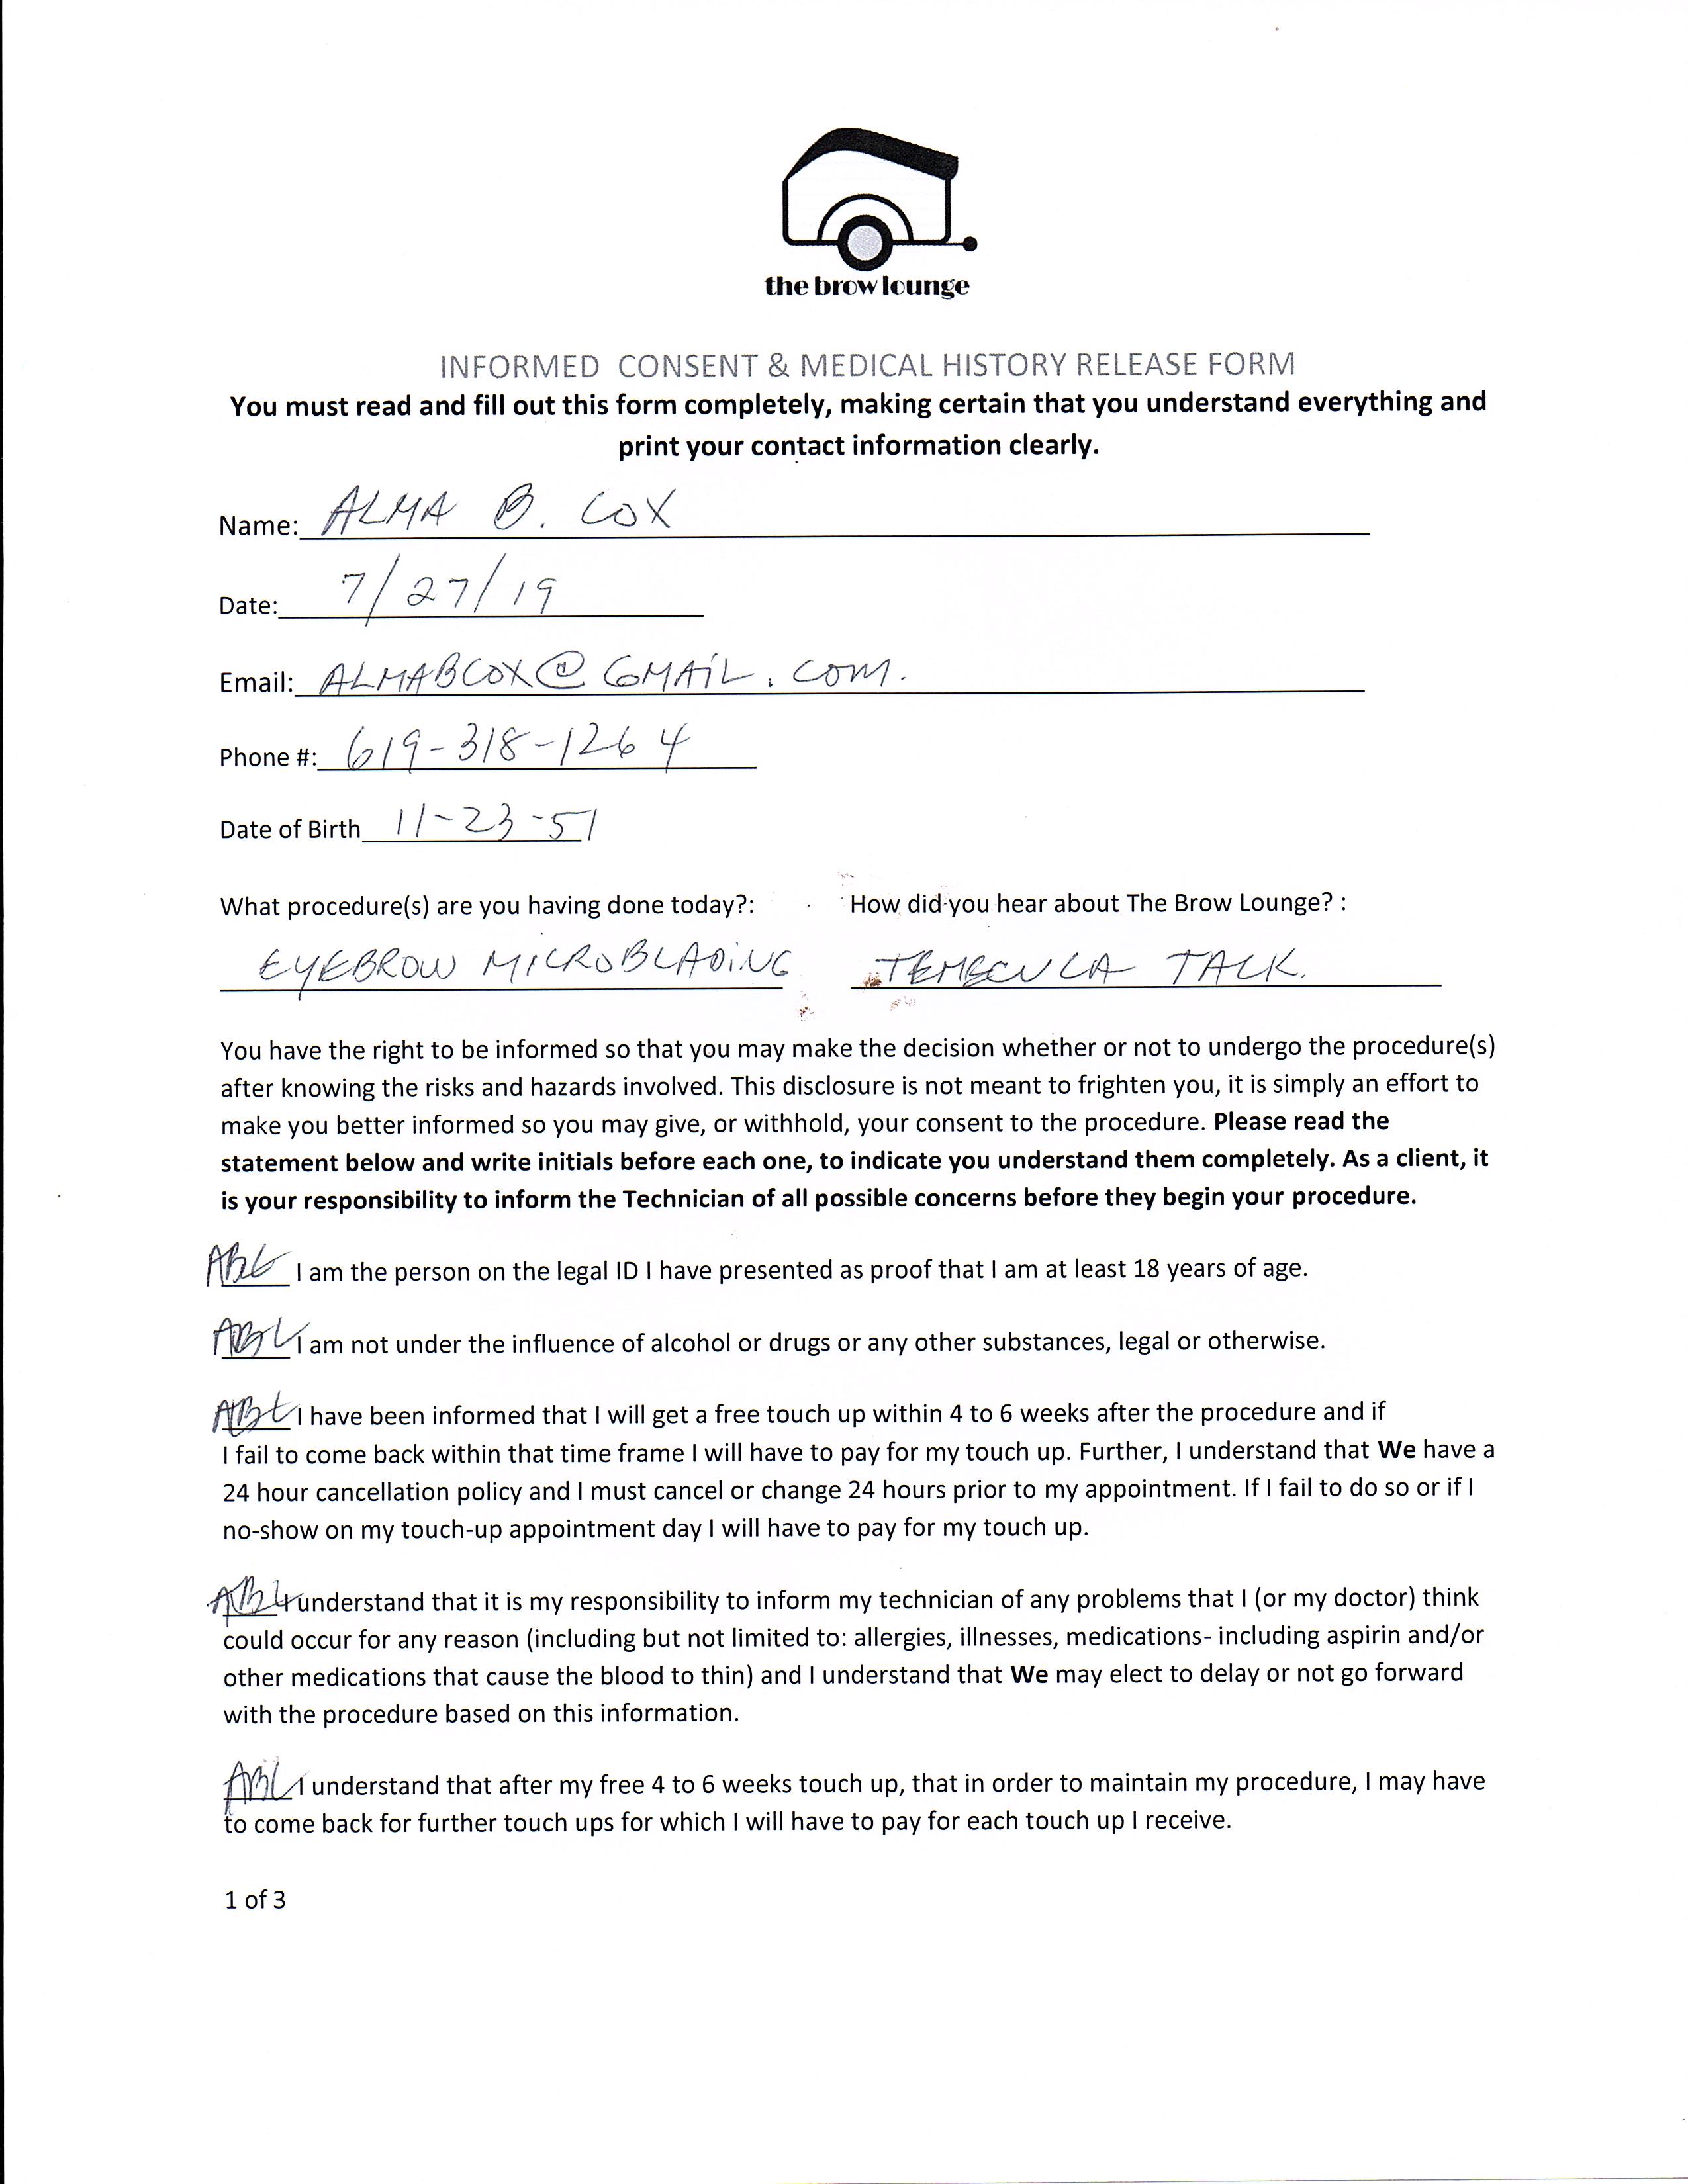 the brow lounge
INFORMED CONSENT & MEDICAL HISTORY RELEASE FORM
You must read and fill out this form completely, making certain that you understand everything and
print your contact information clearly.
Name: ALMA B. COX
Date: 7/27/19
Email: ALMABCOX@GMAIL.COM.
Phone #: 619-318-1264
Date of Birth 11-23-51
What procedure(s) are you having done today?: How did you hear about The Brow Lounge? :
EYEBROW MICROBLADING TEMECULA TALK.
You have the right to be informed so that you may make the decision whether or not to undergo the procedure(s)
after knowing the risks and hazards involved. This disclosure is not meant to frighten you, it is simply an effort to
make you better informed so you may give, or withhold, your consent to the procedure. Please read the
statement below and write initials before each one, to indicate you understand them completely. As a client, it
is your responsibility to inform the Technician of all possible concerns before they begin your procedure.
ABC I am the person on the legal ID I have presented as proof that I am at least 18 years of age.
ABC I am not under the influence of alcohol or drugs or any other substances, legal or otherwise.
ABC I have been informed that I will get a free touch up within 4 to 6 weeks after the procedure and if
I fail to come back within that time frame I will have to pay for my touch up. Further, I understand that We have a
24 hour cancellation policy and I must cancel or change 24 hours prior to my appointment. If I fail to do so or if I
no-show on my touch-up appointment day I will have to pay for my touch up.
ABC I understand that it is my responsibility to inform my technician of any problems that I (or my doctor) think
could occur for any reason (including but not limited to: allergies, illnesses, medications- including aspirin and/or
other medications that cause the blood to thin) and I understand that We may elect to delay or not go forward
with the procedure based on this information.
ABC I understand that after my free 4 to 6 weeks touch up, that in order to maintain my procedure, I may have
to come back for further touch ups for which I will have to pay for each touch up I receive.
1 of 3